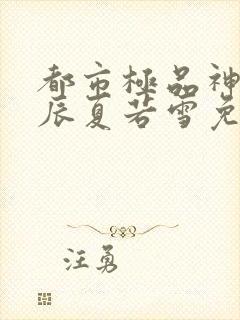 都市極品神
辰夏若雪免
汪勇